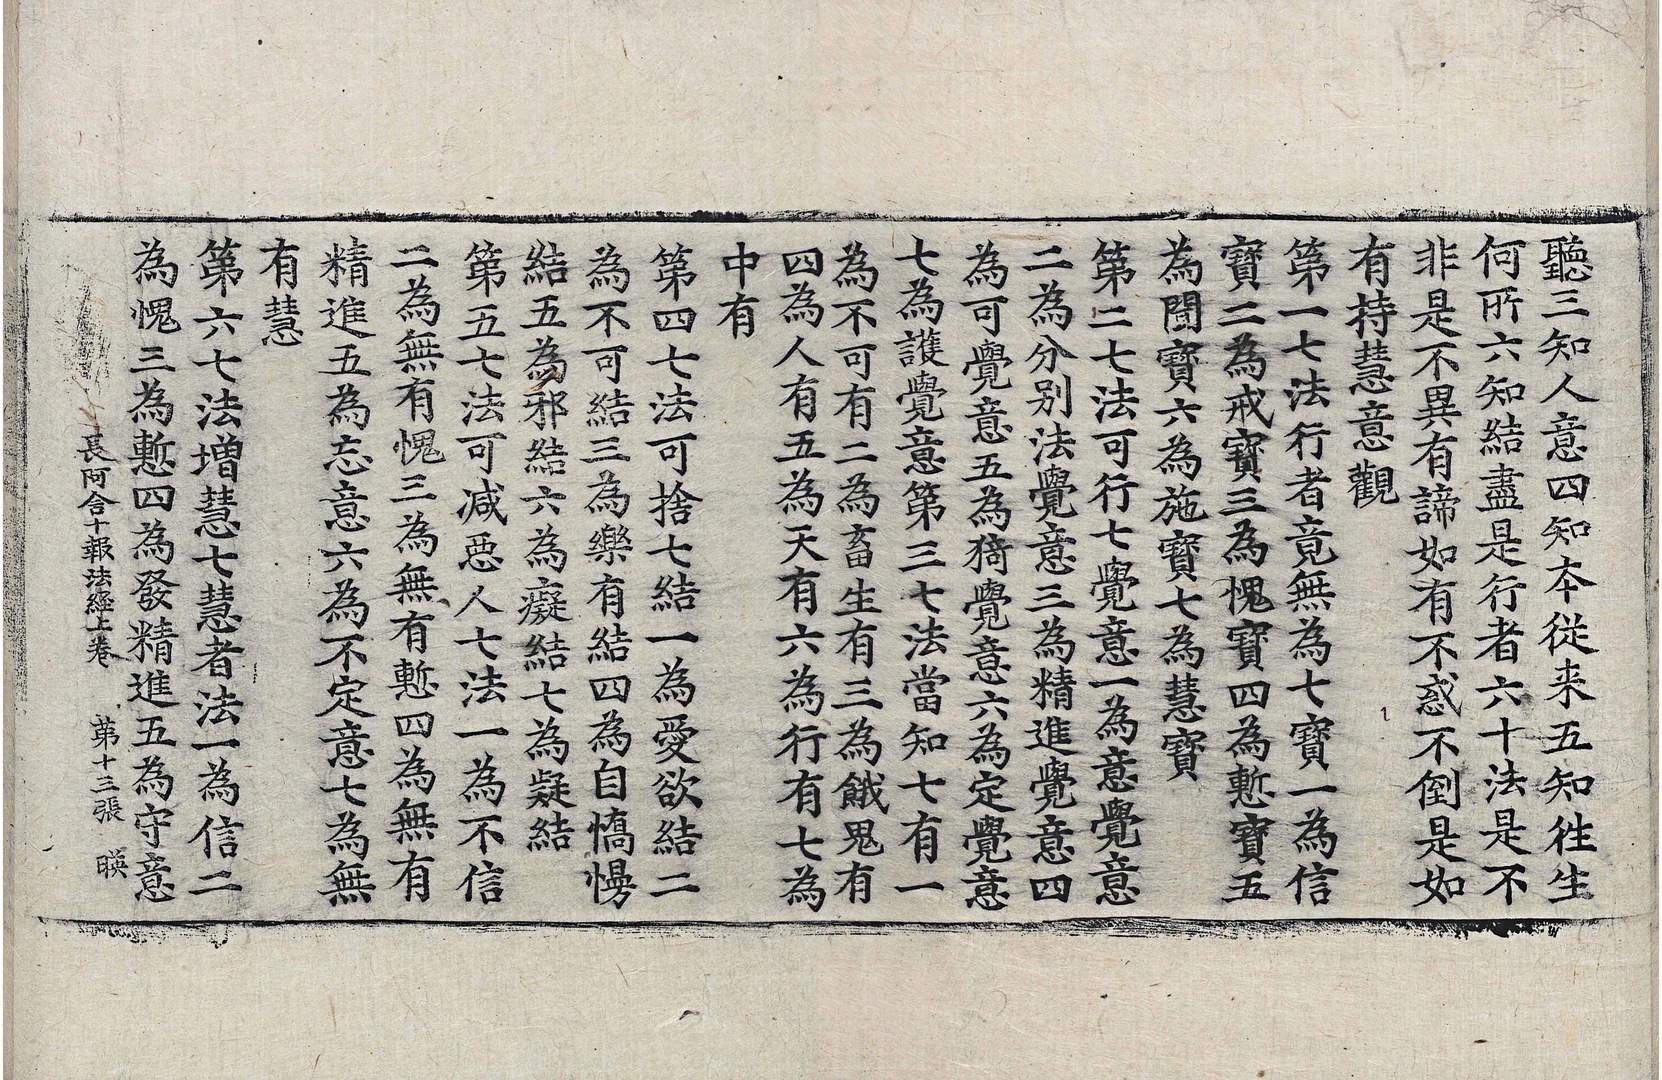 聽三知人意四知本從来五知徃生
何所六知結盡是行者六十法是不
非是不異有諦如有不惑不倒是如
有持慧意觀
第一七法行者竟無為七寶一為信
寶二為戒寶三為愧寶四為慙寶五
為聞寶六為施寶七為慧寶
第二七法可行七覺意一為意覺意
二為分别法覺意三為精進覺意四
為可覺意五為猗覺意六為定覺意
七為護覺意第三七法當知七有一
為不可有二為畜生有三為餓鬼有
四為人有五為天有六為行有七為
中有
第四七法可捨七結一為愛欲結二
為不可結三為樂有結四為自憍慢
結五為邪結六為癡結七為疑結
第五七法可减惡人七法一為不信
二為無有愧三為無有慙四為無有
精進五為忘意六為不定意七為無
有慧
第六七法增慧七慧者法一為信二
為愧三為慙四為發精進五為守意
長阿含十報法經上卷 第十三張 暎